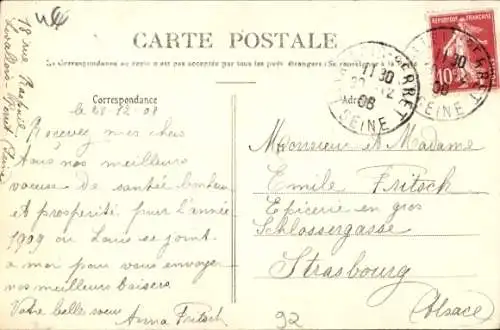 CARTE POSTALE
La Correspondance au recto n'est pas acceptée par tous les pays étrangers (Se renseigner à la Poste)
Correspondance
Adresse
18 rue
Levallois-Perret Seine
le 28-12-08
Recevez mes chers
Tous nos meilleurs
voeux de santée bonheur
et prosperité pour l'année
1909 ou Louis se joint
a moi pour vous envoyer
nos meilleurs baisers
Votre belle soeur
Anna Fritsch
Monsieur et Madame
Emile Fritsch
Epicerie en gros
Schlossergasse
Strasbourg
Alsace
92
REPUBLIQUE FRANCAISE
10
PERRET
11 30
12
08
SEINE
PERRET
30
12
08
SEINE